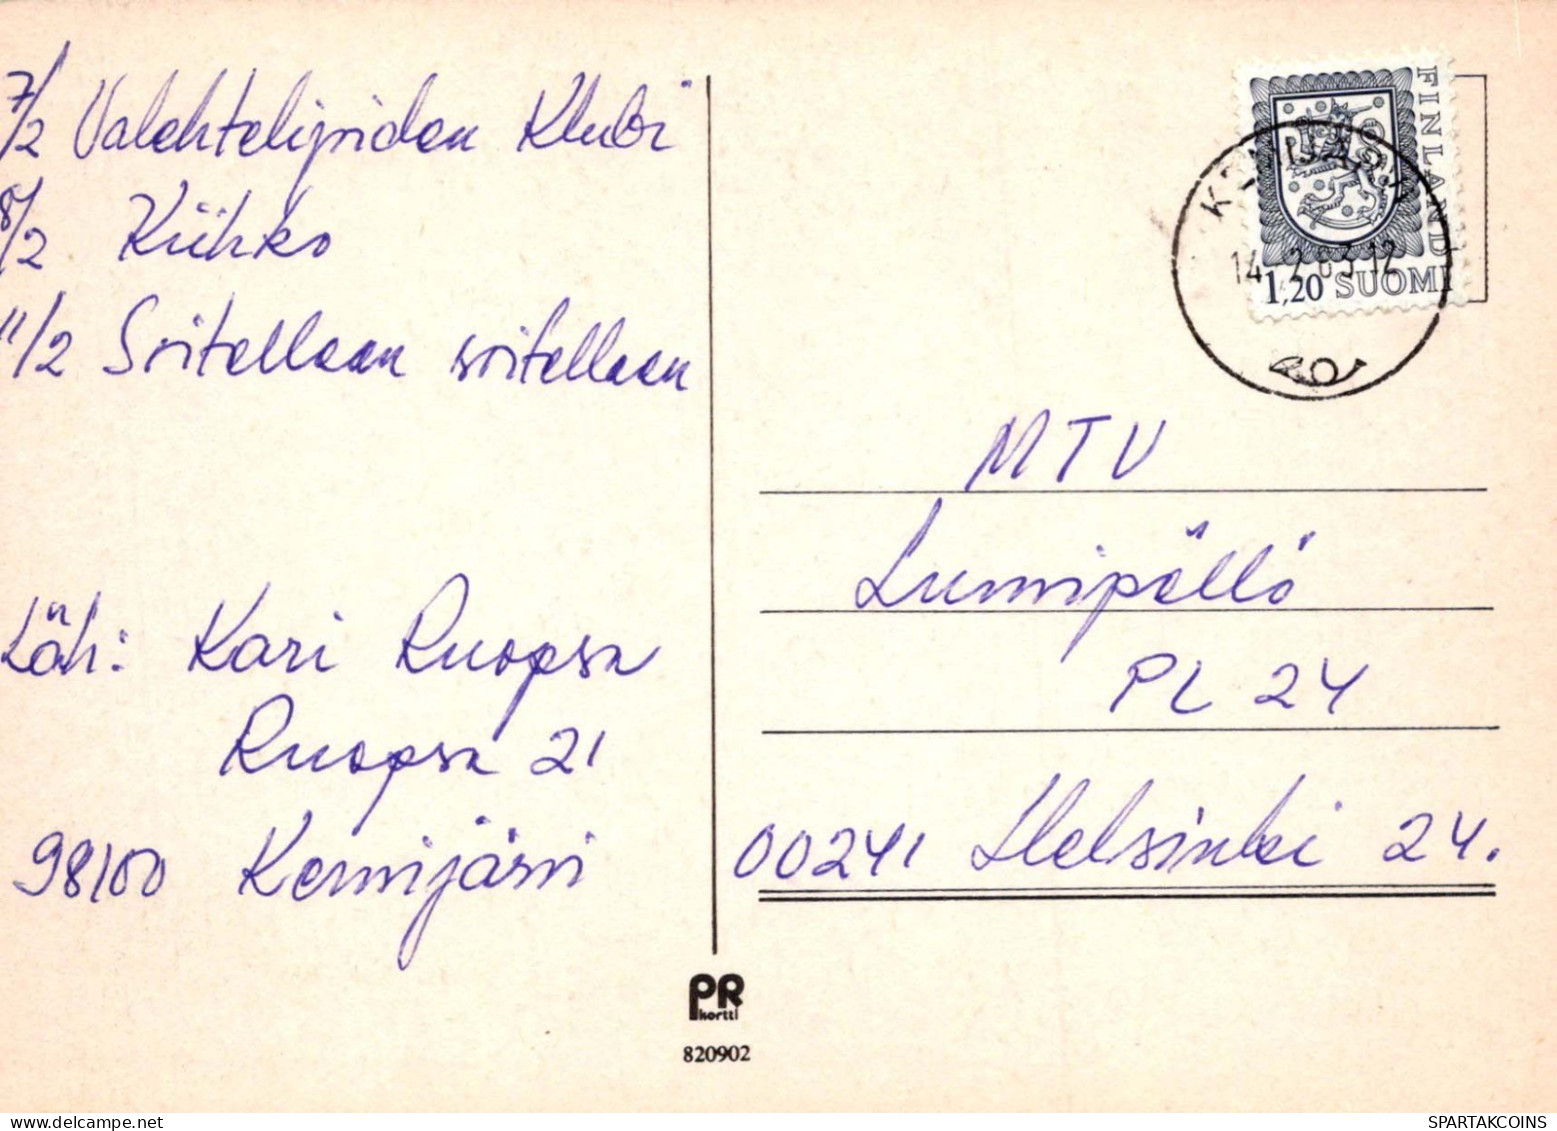 7/2 Valehtelijoiden Klubi
8/2 Kiihko
11/2 Soitellaan soitellaan
Läh: Kari Ruopsa
Ruopsa 21
98100 Kemijärvi
FINLAND
1,20 SUOMI
KEMIJÄRVI
14.2.83.12
MTV
Lumipallo
PL 24
00241 Helsinki 24.
PR
kortti
820902
delcampe.net
SPARTAKCOINS